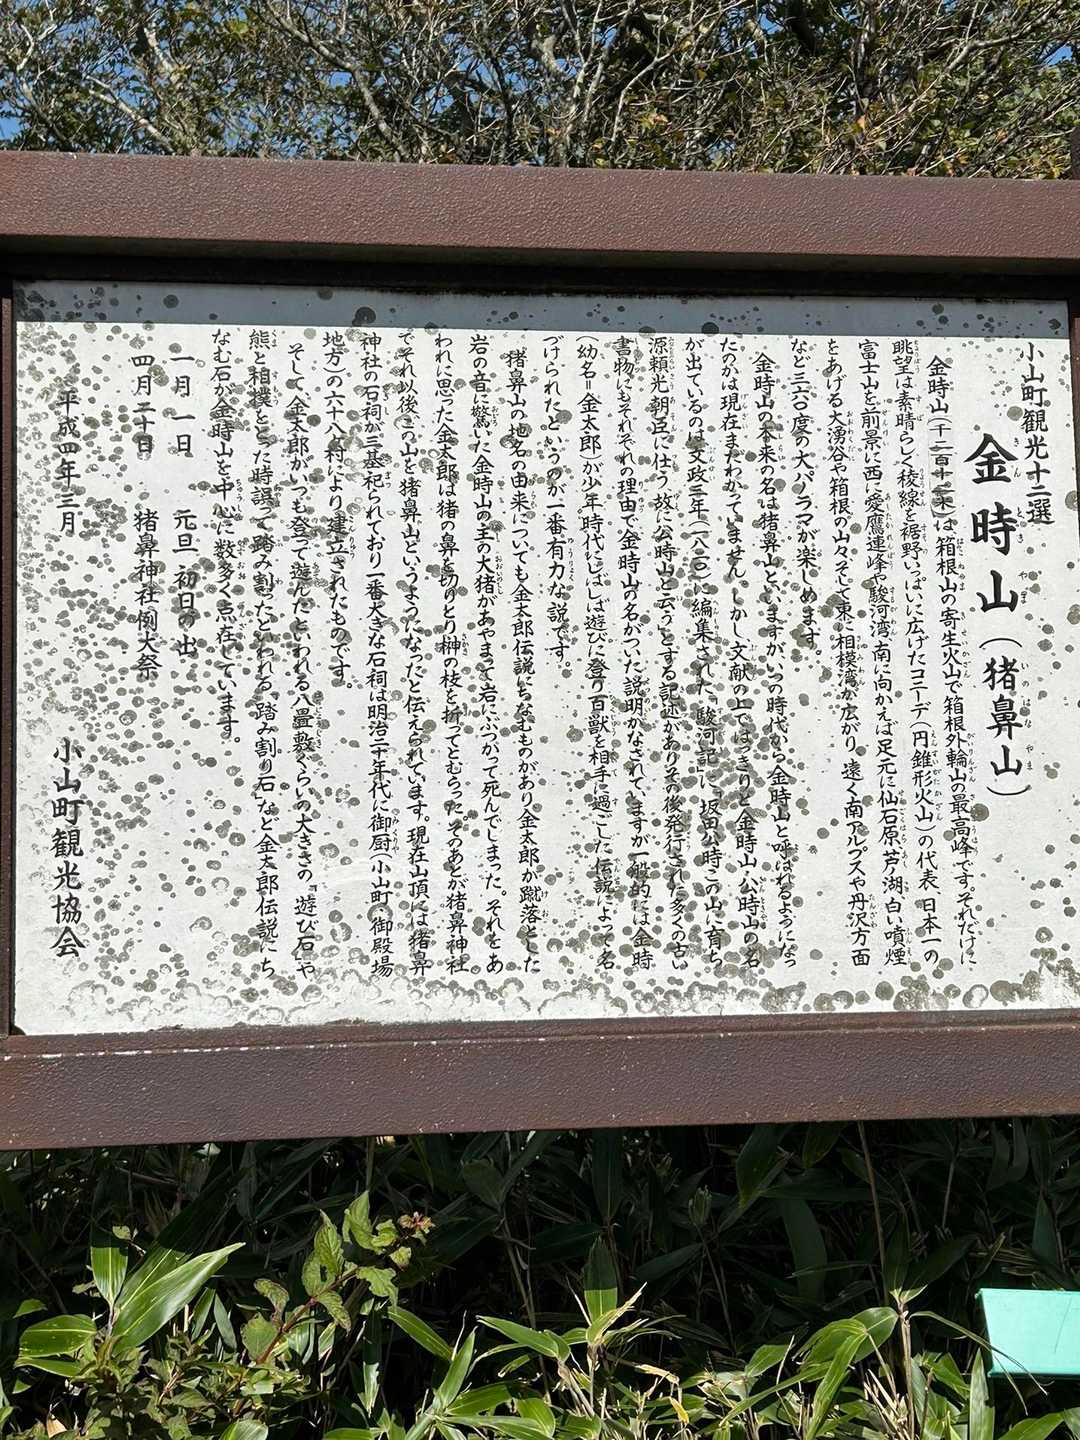 小山町観光十二選
金時山（猪鼻山）
金時山（千二百十三米）は箱根山の寄生火山で箱根外輪山の最高峰です。それだけに
眺望は素晴らしく稜線を裾野いっぱいに広げたコニーデ（円錐形火山）の代表、日本一の
富士山を前景に西に愛鷹連峰や駿河湾、南に向かえば足元に仙石原、芦ノ湖、白い噴煙
をあげる大湧谷や箱根の山々そして東に相模湾が広がり、遠く南アルプスや丹沢方面
など三六〇度の大パノラマが楽しめます。
金時山の本来の名は猪鼻山といいますが、いつの時代から金時山と呼ばれるようになっ
たのかは現在まだわかっていません。しかし文献の上ではっきりと金時山・公時山の名
が出ているのは文政三年（一八二〇）に編集された「駿河記」に「坂田公時この山に育ち
源頼光朝臣に仕う、故に公時山と云う」とする記述がありその後発行された多くの古い
書物にもそれぞれの理由で金時山の名がついた説明がなされていますが一般的には金時
（幼名＝金太郎）が少年時代にしばしば遊びに登り百獣を相手に過ごした伝説によって名
づけられたというのが一番有力な説です。
猪鼻山の地名の由来についても金太郎伝説にちなむものがあり金太郎が蹴落とした
岩の音に驚いた金時山の主の大猪があやまって岩にぶつかって死んでしまった。それをあ
われに思った金太郎は猪の鼻を切りとり榊の枝を折ってとむらった。そのあとが猪鼻神社
でそれ以後この山を猪鼻山というようになったと伝えられています。現在山頂には猪鼻
神社の石祠が三基祀られており一番大きな石祠は明治二十年代に御厨（小山町、御殿場
地方）の六十八ヶ村により建立されたものです
そして金太郎がいつも登って遊んだといわれる八畳敷ぐらいの大きさの「遊び石」や
熊と相撲をとった時誤って踏み割ったといわれる「踏み割り石」など金太郎伝説にち
なむ石が金時山を中心に数多く点在しています。
一月一日　元旦　初日の出
四月二十日　猪鼻神社例大祭
平成四年三月　小山町観光協会